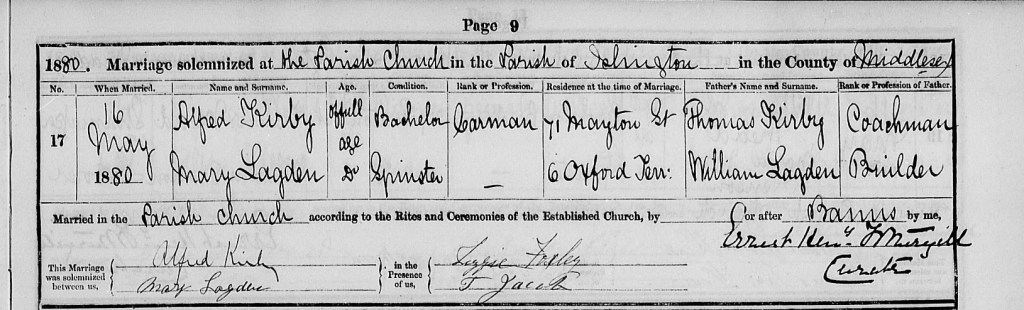 Page 9
1880. Marriage solemnized at the Parish Church in the Parish of Islington in the County of Middlesex
No. When Married. Name and Surname. Age. Condition. Rank or Profession. Residence at the time of Marriage. Father's Name and Surname. Rank or Profession of Father.
17 16 May 1880 Alfred Kirby of full age Bachelor Carman 71 Mayton St Thomas Kirby Coachman
Mary Lagden Do Spinster — 6 Oxford Terr: William Lagden Builder
Married in the Parish Church according to the Rites and Ceremonies of the Established Church, by or after Banns by me,
Ernest Heny.
Curate
This Marriage was solemnized between us, Alfred Kirby in the Presence of us, Lizzie Foxley
Mary Lagden T Jacob